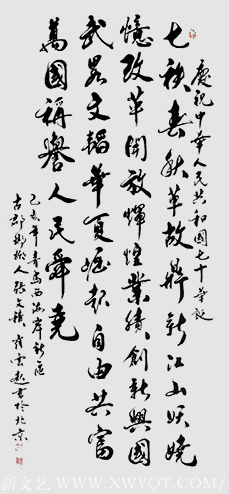 慶祝中華人民共和國七十華誕
七秩春秋革故鼎新江山妖嬈
憶改革開放輝煌業績創新興國
武略文韜華夏崛起自由共富
萬國稱譽人民舜堯
己亥年青島西海岸新區
古郡 人張文
書於北京
新文艺 WWW.XWYQT.COM/